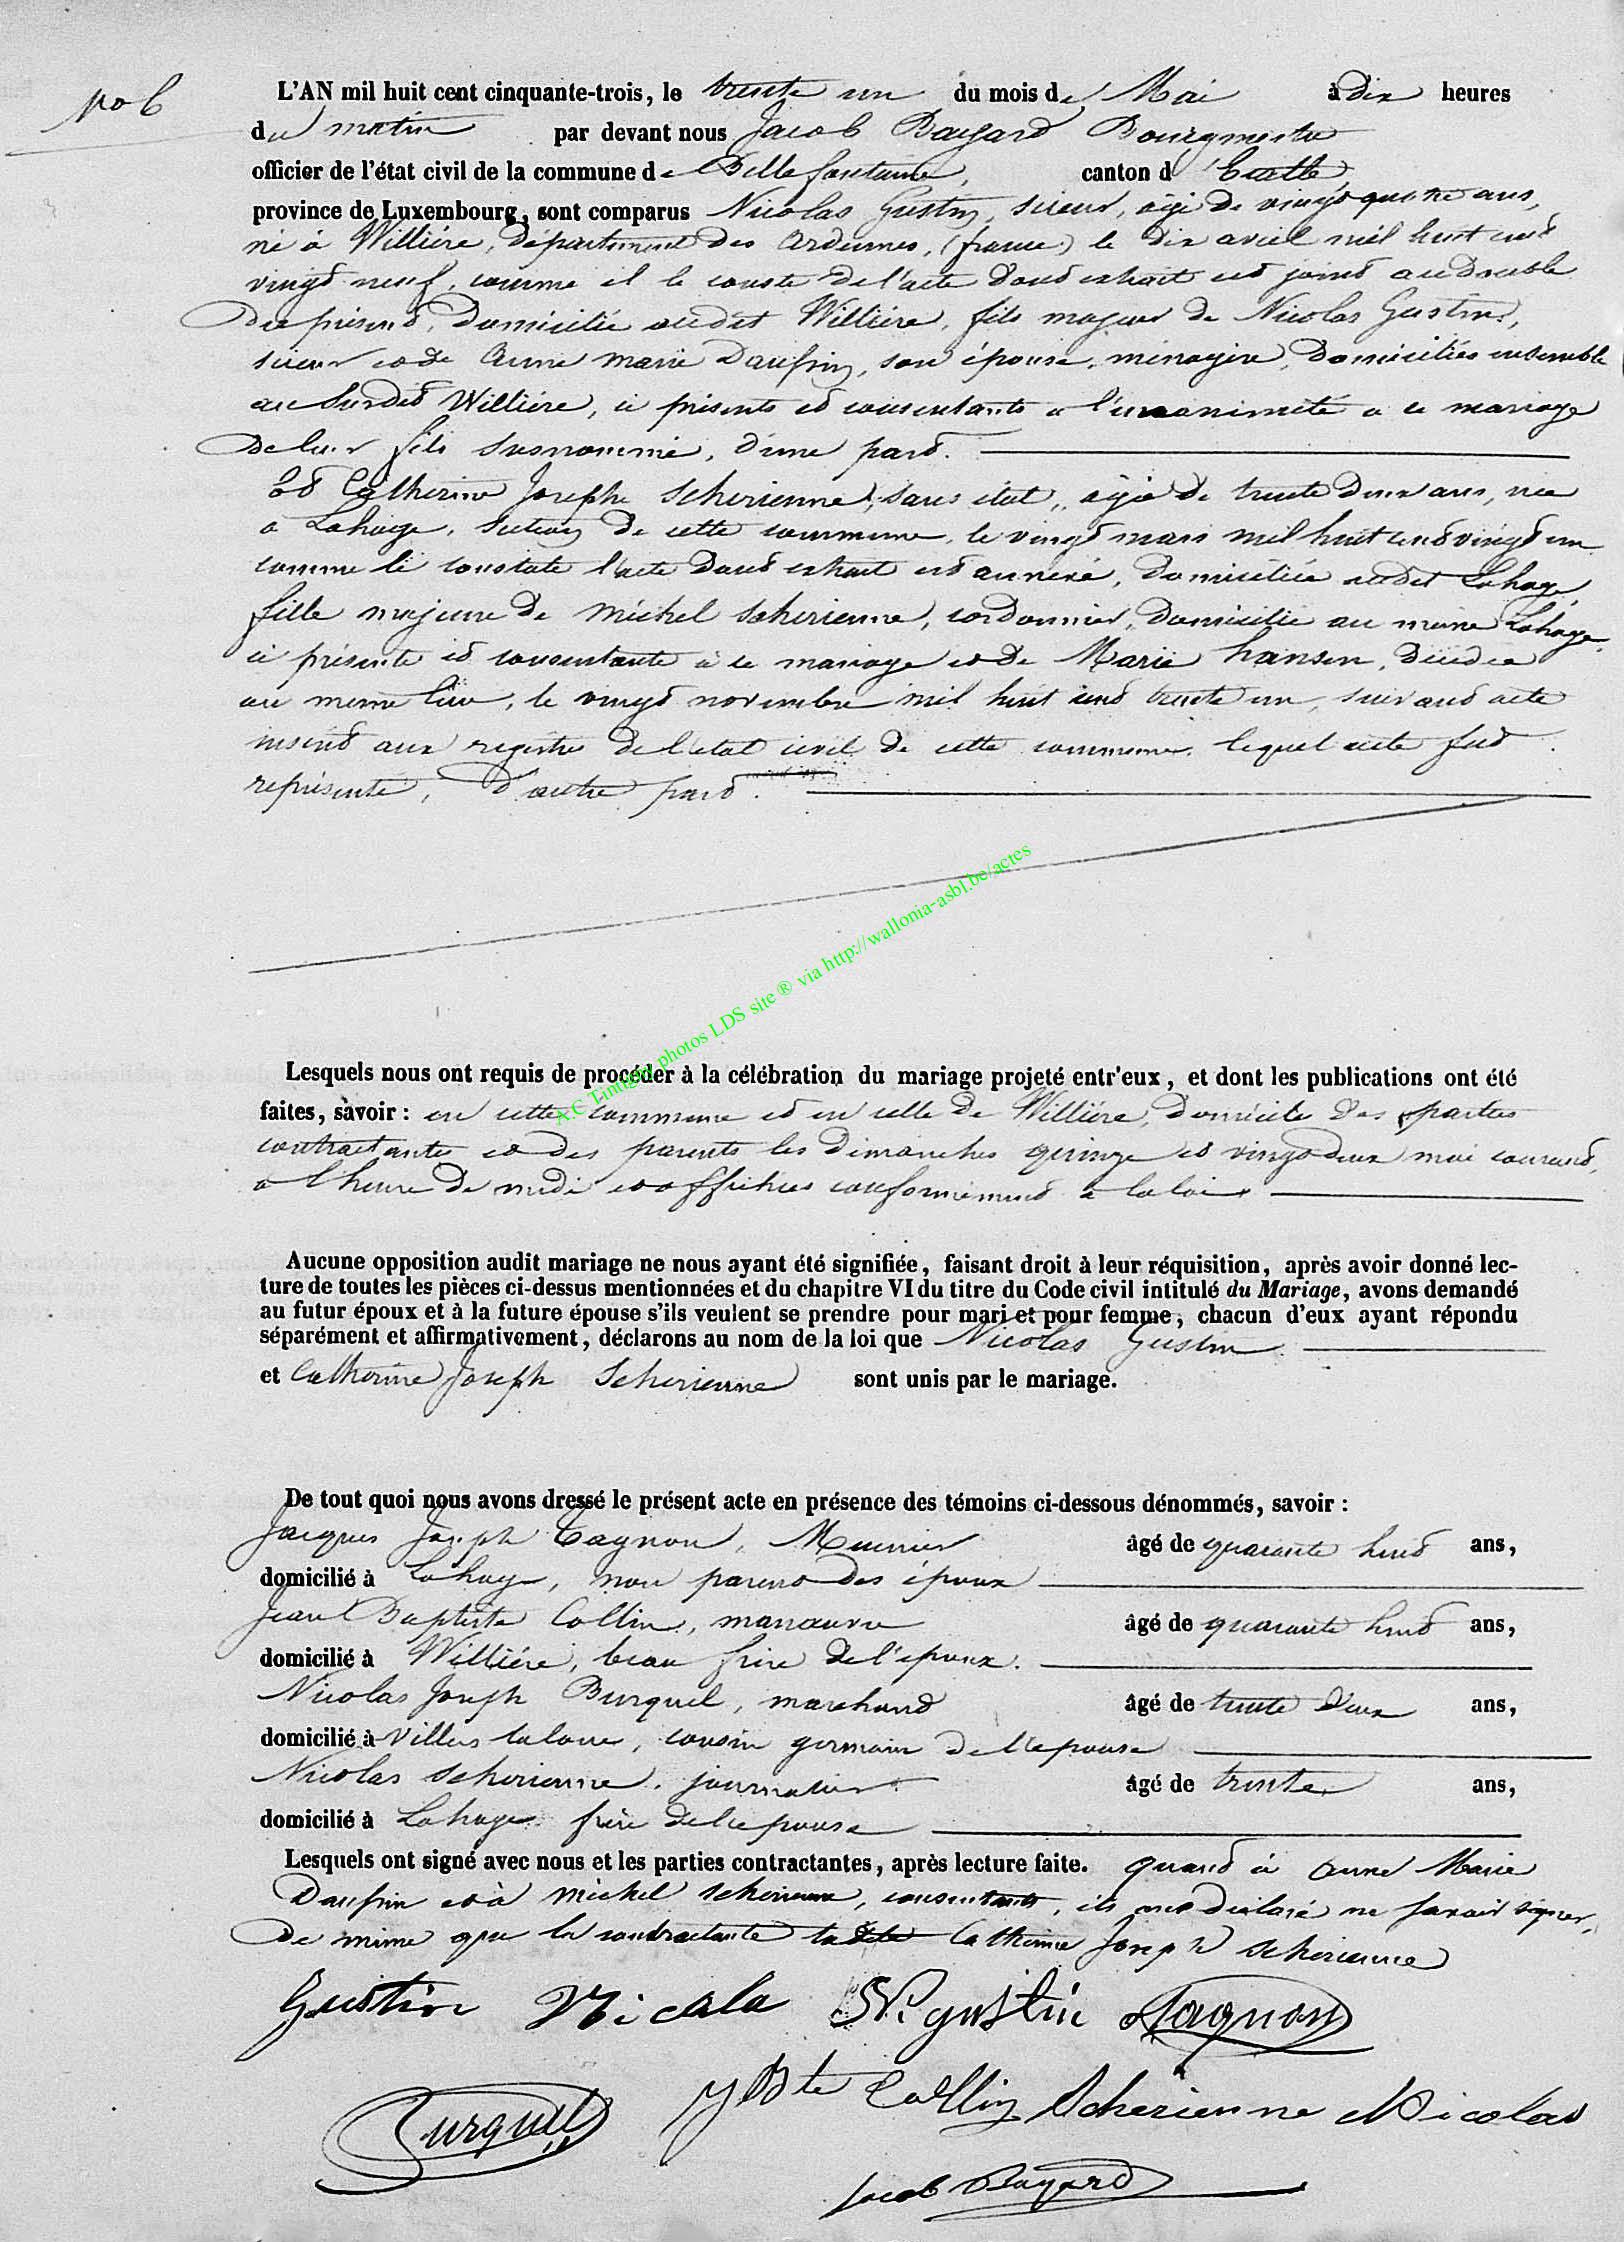 No 6
L'AN mil huit cent cinquante-trois, le trente un du mois de Mai à dix heures
du matin par devant nous Jacob Bayard Bourgmestre
officier de l'état civil de la commune de Bellefontaine, canton d'
province de Luxembourg, sont comparus Nicolas Gustin, scieur, âgé de vingt quatre ans,
né à Willière, département des Ardennes, (france) le dix avril mil huit cent
vingt neuf, comme il le conste de l'acte dont extrait est joint au double
du présent, domicilié audit Willière, fils majeur de Nicolas Gustin,
scieur et de Anne Marie Daufrin, son épouse, ménagère, domiciliés ensemble
au susdit Willière, ci présents et consentants a l'unanimité a ce mariage
de leur fils susnommé, d'une part.
Et Catherine Joseph Scherienne, sans état, agée de trente deux ans, née
a Lahage, section de cette commune, le vingt mars mil huit cent vingt un
comme le constate l'acte dont extrait est annexé, domiciliée audit Lahage,
fille majeure de Michel Scherienne, cordonnier, domicilié au même Lahage,
ci présente et consentante à ce mariage et de Marie hansen, décédée
au même lieu, le vingt novembre mil huit cent trente un, suivant acte
inscrit aux registre de l'état civil de cette commune, lequel acte fut
représenté, d'autre part.
A.C Tintigny photos LDS site ® via http://wallonia-asbl.be/actes
Lesquels nous ont requis de procéder à la célébration du mariage projeté entr'eux, et dont les publications ont été
faites, savoir : en cette commune et en celle de Willière, domicile des parties
contractantes et des parents les dimanches quinze et vingt deux mai courant,
a l'heure de midi et affichées conformément a la loi
Aucune opposition audit mariage ne nous ayant été signifiée, faisant droit à leur réquisition, après avoir donné lec-
ture de toutes les pièces ci-dessus mentionnées et du chapitre VI du titre du Code civil intitulé du Mariage, avons demandé
au futur époux et à la future épouse s'ils veulent se prendre pour mari et pour femme, chacun d'eux ayant répondu
séparément et affirmativement, déclarons au nom de la loi que Nicolas Gustin
et Catherine Joseph Scherienne sont unis par le mariage.
De tout quoi nous avons dressé le présent acte en présence des témoins ci-dessous dénommés, savoir :
Jacques Joseph Tagnon, Meunier âgé de quarante huit ans,
domicilié à Lahage, non parent des époux
Jean Baptiste Collin, manœuvre âgé de quarante huit ans,
domicilié à Willière, beau frère de l'époux.
Nicolas Joseph Burquel, marchand âgé de trente deux ans,
domicilié à Villers laloue, cousin germain de l'épouse
Nicolas Scherienne, journalier âgé de trente ans,
domicilié à Lahage frère de l'épouse
Lesquels ont signé avec nous et les parties contractantes, après lecture faite. quand à Anne Marie
Daufrin et à Michel Scherienne, consentants, ils ont déclaré ne savoir signer,
de même que la contractante ladite Catherine Joseph Scherienne
Gustin Nicola N. gustin Tagnon
Burquel J Bte Collin Scherienne Nicolas
Jacob Bayard